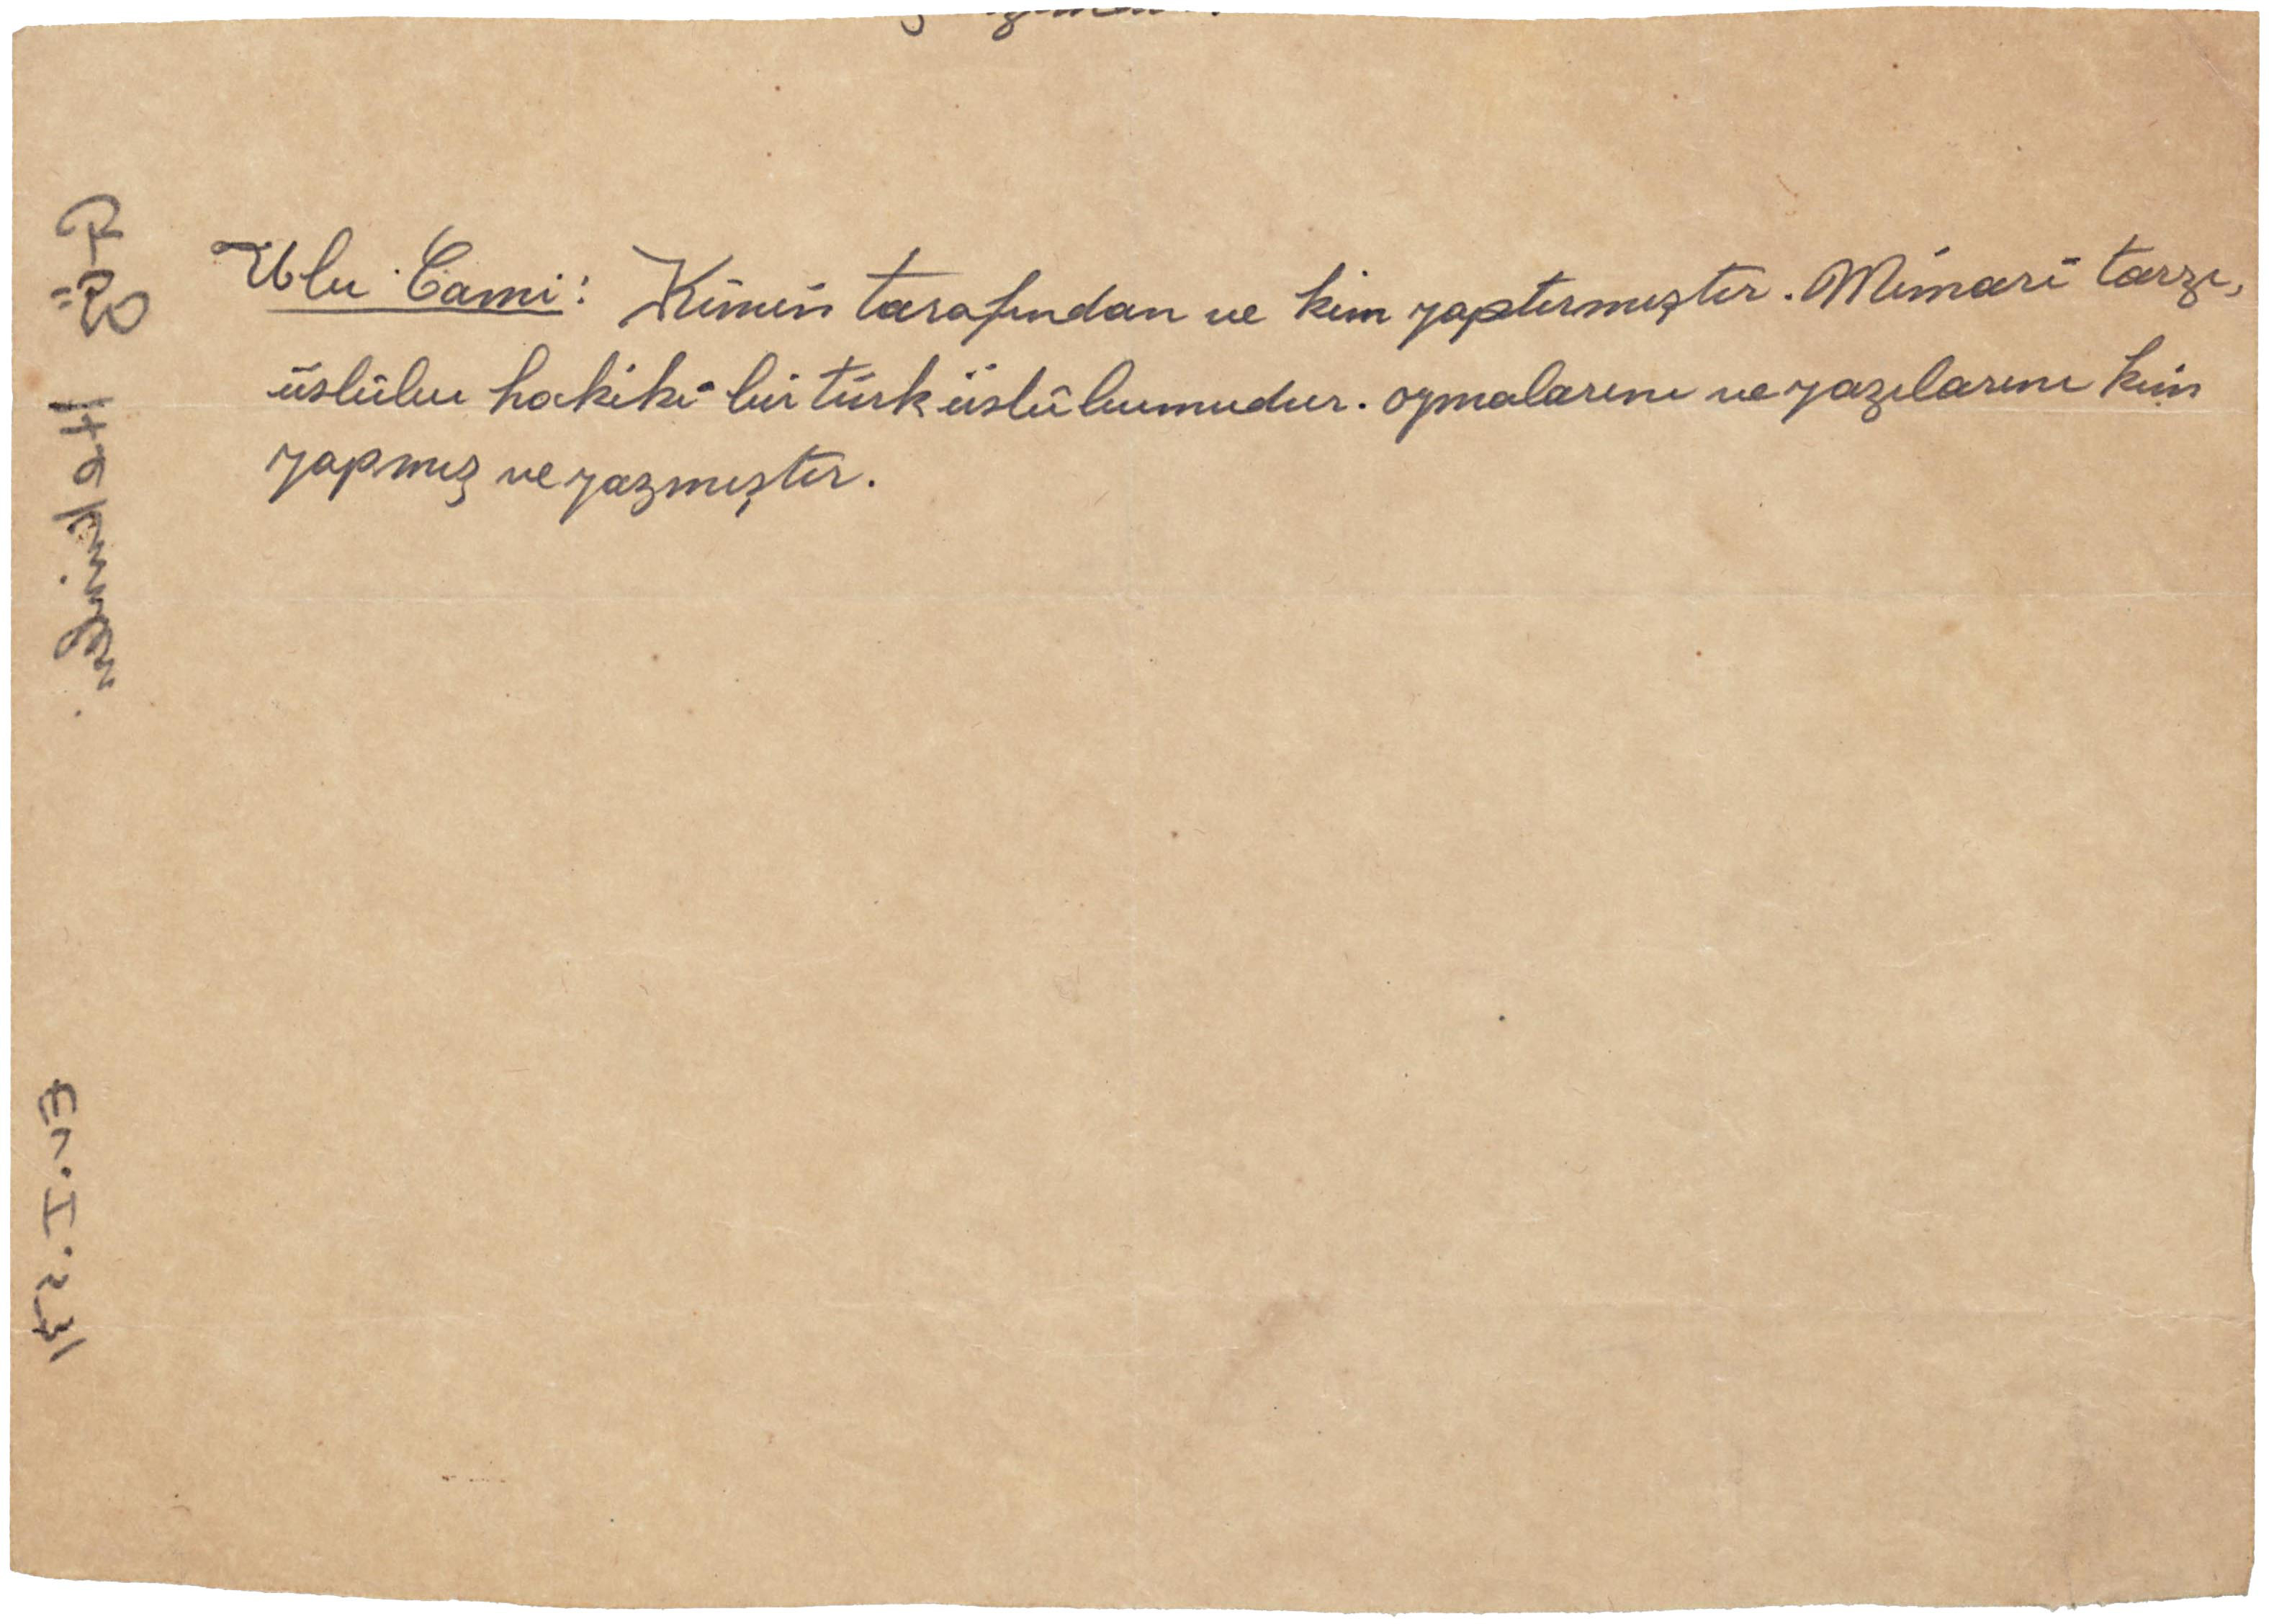 Ulu Cami: Kimin tarafından ve kim yaptırmıştır. Mimari tarzı,
üslûbu hakiki bir türk üslûbumudur. oymalarını ve yazılarını kim
yapmış ve yazmıştır.